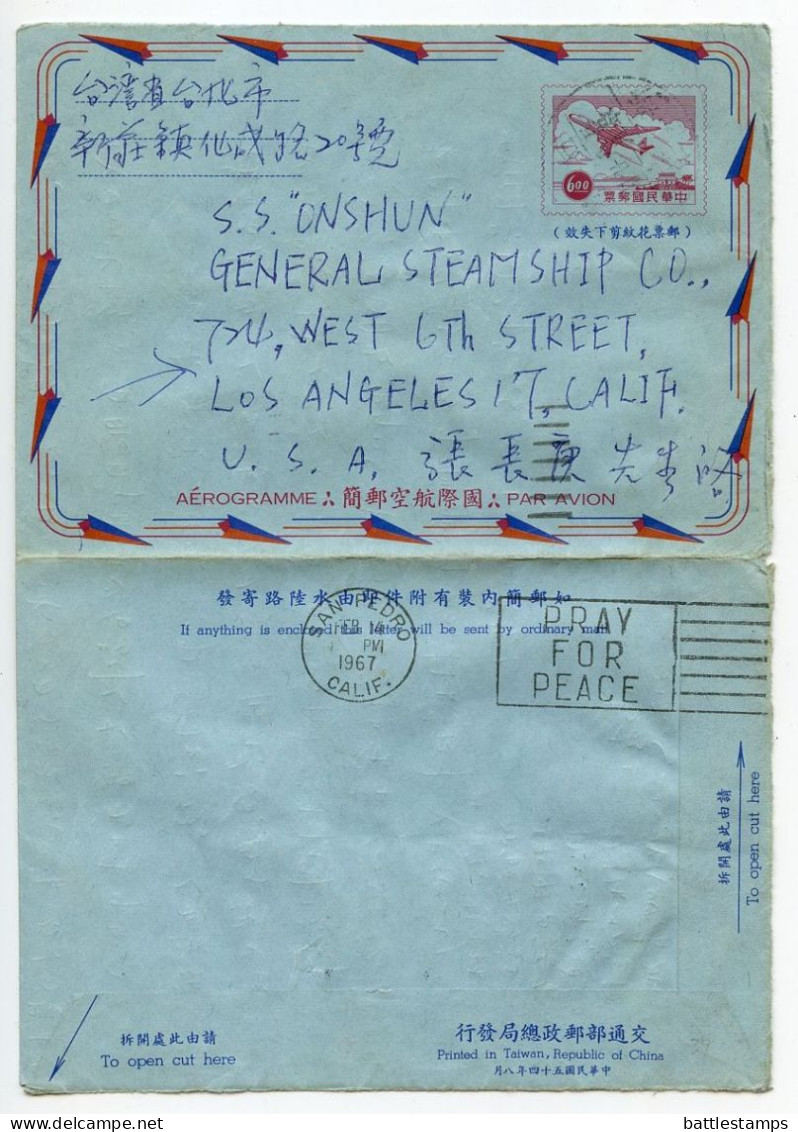 台灣省台北市
新莊鎮化成路20號
6.00
票郵國民華中
(效失下剪紋花票郵)
S.S. "ONSHUN"
GENERAL STEAMSHIP CO.,
724, WEST 6th STREET,
LOS ANGELES 17, CALIF.
U. S. A. 張長庚先生啓
AÉROGRAMME 簡郵空航際國 PAR AVION
發寄路陸水由即件附有裝內簡郵如
If anything is enclosed this letter will be sent by ordinary mail
SAN PEDRO
FEB 14
PM
1967
CALIF.
PRAY
FOR
PEACE
拆開處此由請
To open cut here
拆開處此由請
To open cut here
行發局總政郵部通交
Printed in Taiwan, Republic of China
月八年四十五國民華中
battlestamps